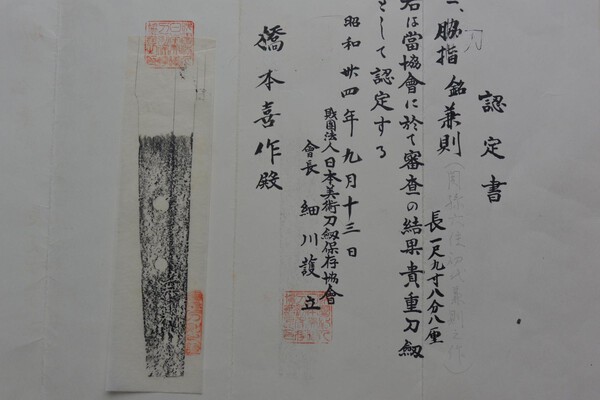 認定書
一、脇指 銘 兼則
長一尺九寸八分八厘
右は當協會に於て審査の結果貴重刀劔
として認定する
昭和卅四年九月十三日
財団法人日本美術刀劔保存協會
會長 細川護立
橋本喜作殿